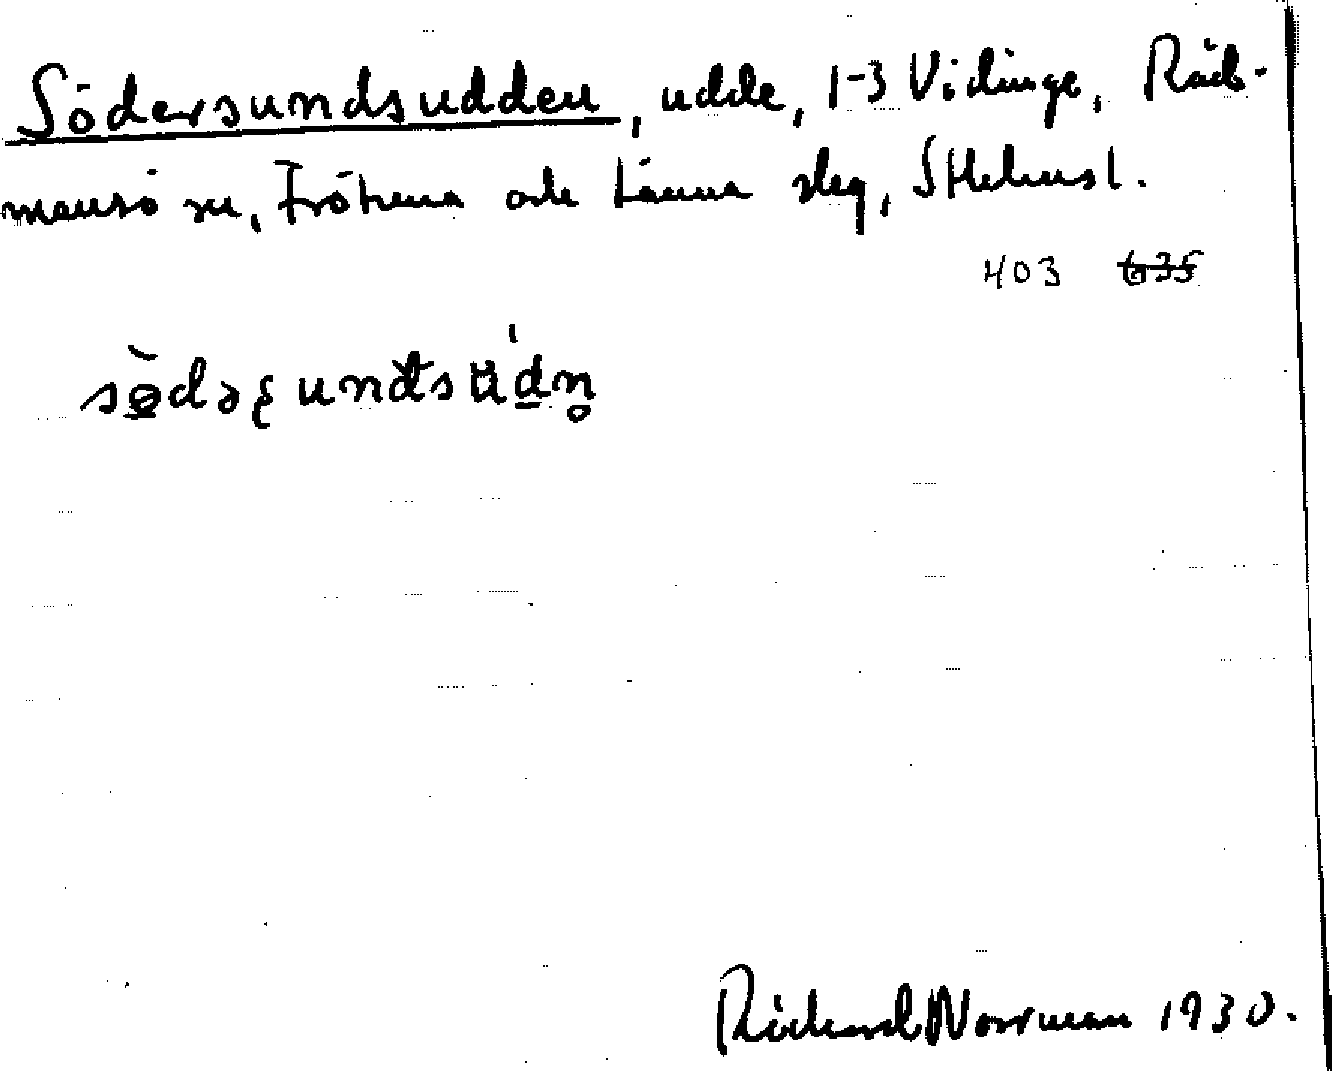 Södersundsudden, udde, 1-3 Vidinge, Råd-
mansö sn, Frötuna och Länna slg, Sthlmsl.
403 635
Richard Norrman 1930.